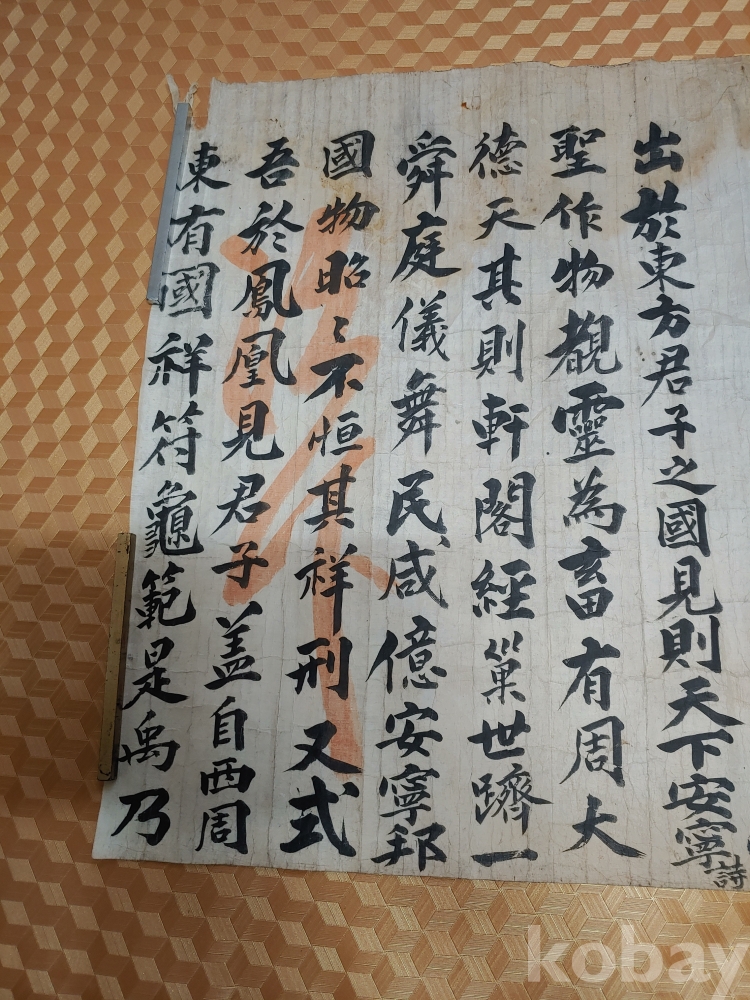 出於東方君子之國見則天下安寧詩
聖作物覩靈為畜有周大
德天其則軒閣經巢世躋一
舜庭儀舞民咸億安寧邦
國物昭〻不恒其祥刑又式
吾於鳳凰見君子盖自西周
東有國祥符龜範是禹乃
kobay